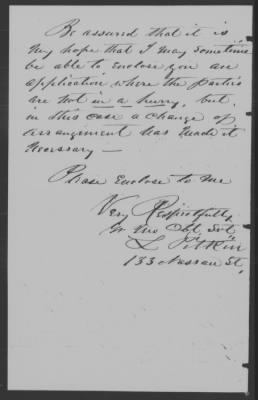 Be assured that it is
my hope that I may sometime
be able to enclose you an
application, where the parties
are not in a hurry, but,
in this case a change of
arrangement has made it
necessary —
Please enclose to me
Very Respectfully,
Yr Obt Svt
L Pitkin
133 Nassau St,